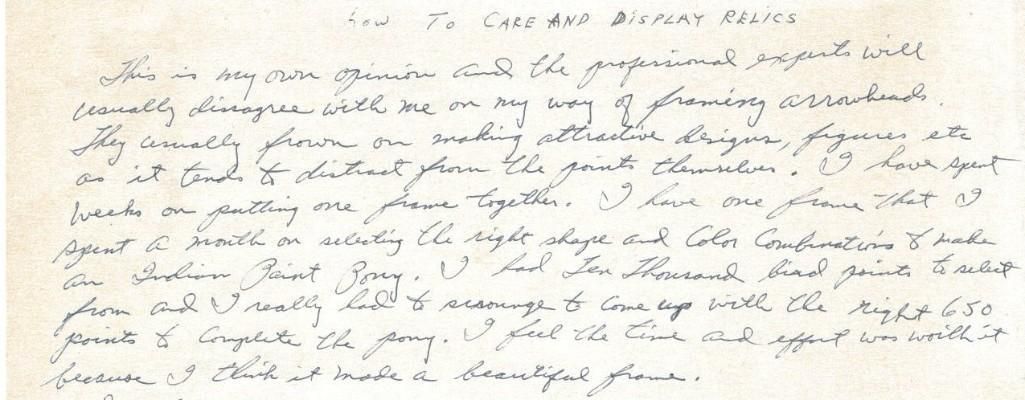 How To CARE AND DISPLAY RELICS
This is my own opinion and the professional experts will
usually dissagree with me on my way of framing arrowheads.
They usually frown on making attractive designs, figures etc
as it tends to distract from the points themselves. I have spent
weeks on putting one frame together. I have one frame that I
spent a month on selecting the right shape and Color Combinations to make
an Indian Paint Pony. I had Ten Thousand bird points to select
from and I really had to scrounge to come up with the right 650
points to complete the pony. I feel the time and effort was worth it
because I think it made a beautiful frame.